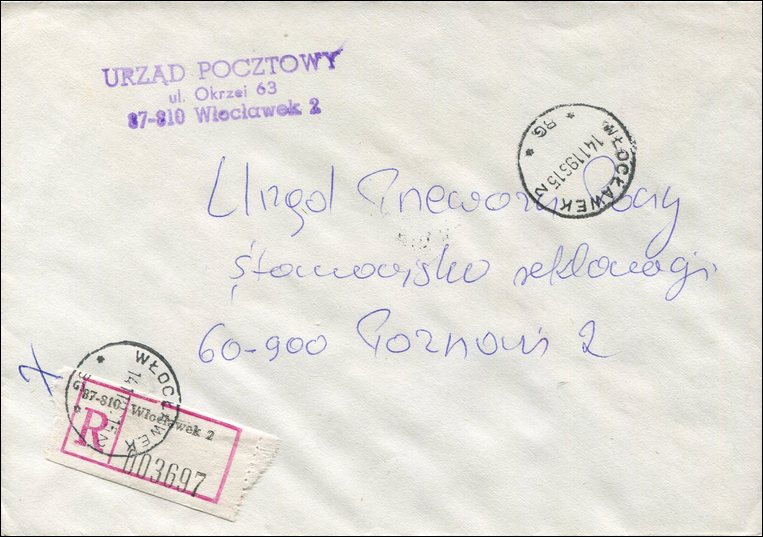 URZĄD POCZTOWY
ul. Okrzei 63
87-810 Włocławek 2
WŁOCŁAWEK 2
* RG *
Urząd Przewozu Poczty
Stanowisko reklamacji
60-900 Poznań 2
WŁOCŁAWEK 2
87-810 Włocławek 2
R
003697